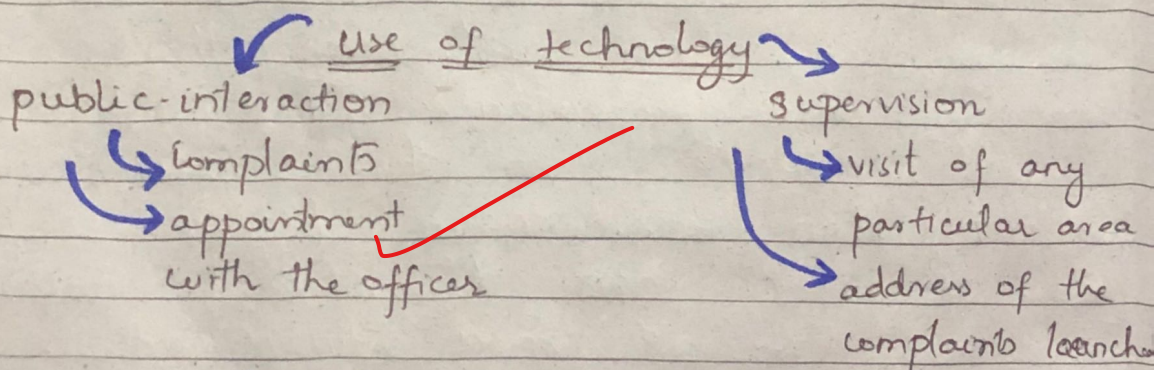 use of technology
public-interaction
complaints
appointment
with the officer
supervision
visit of any
particular area
address of the
complaints